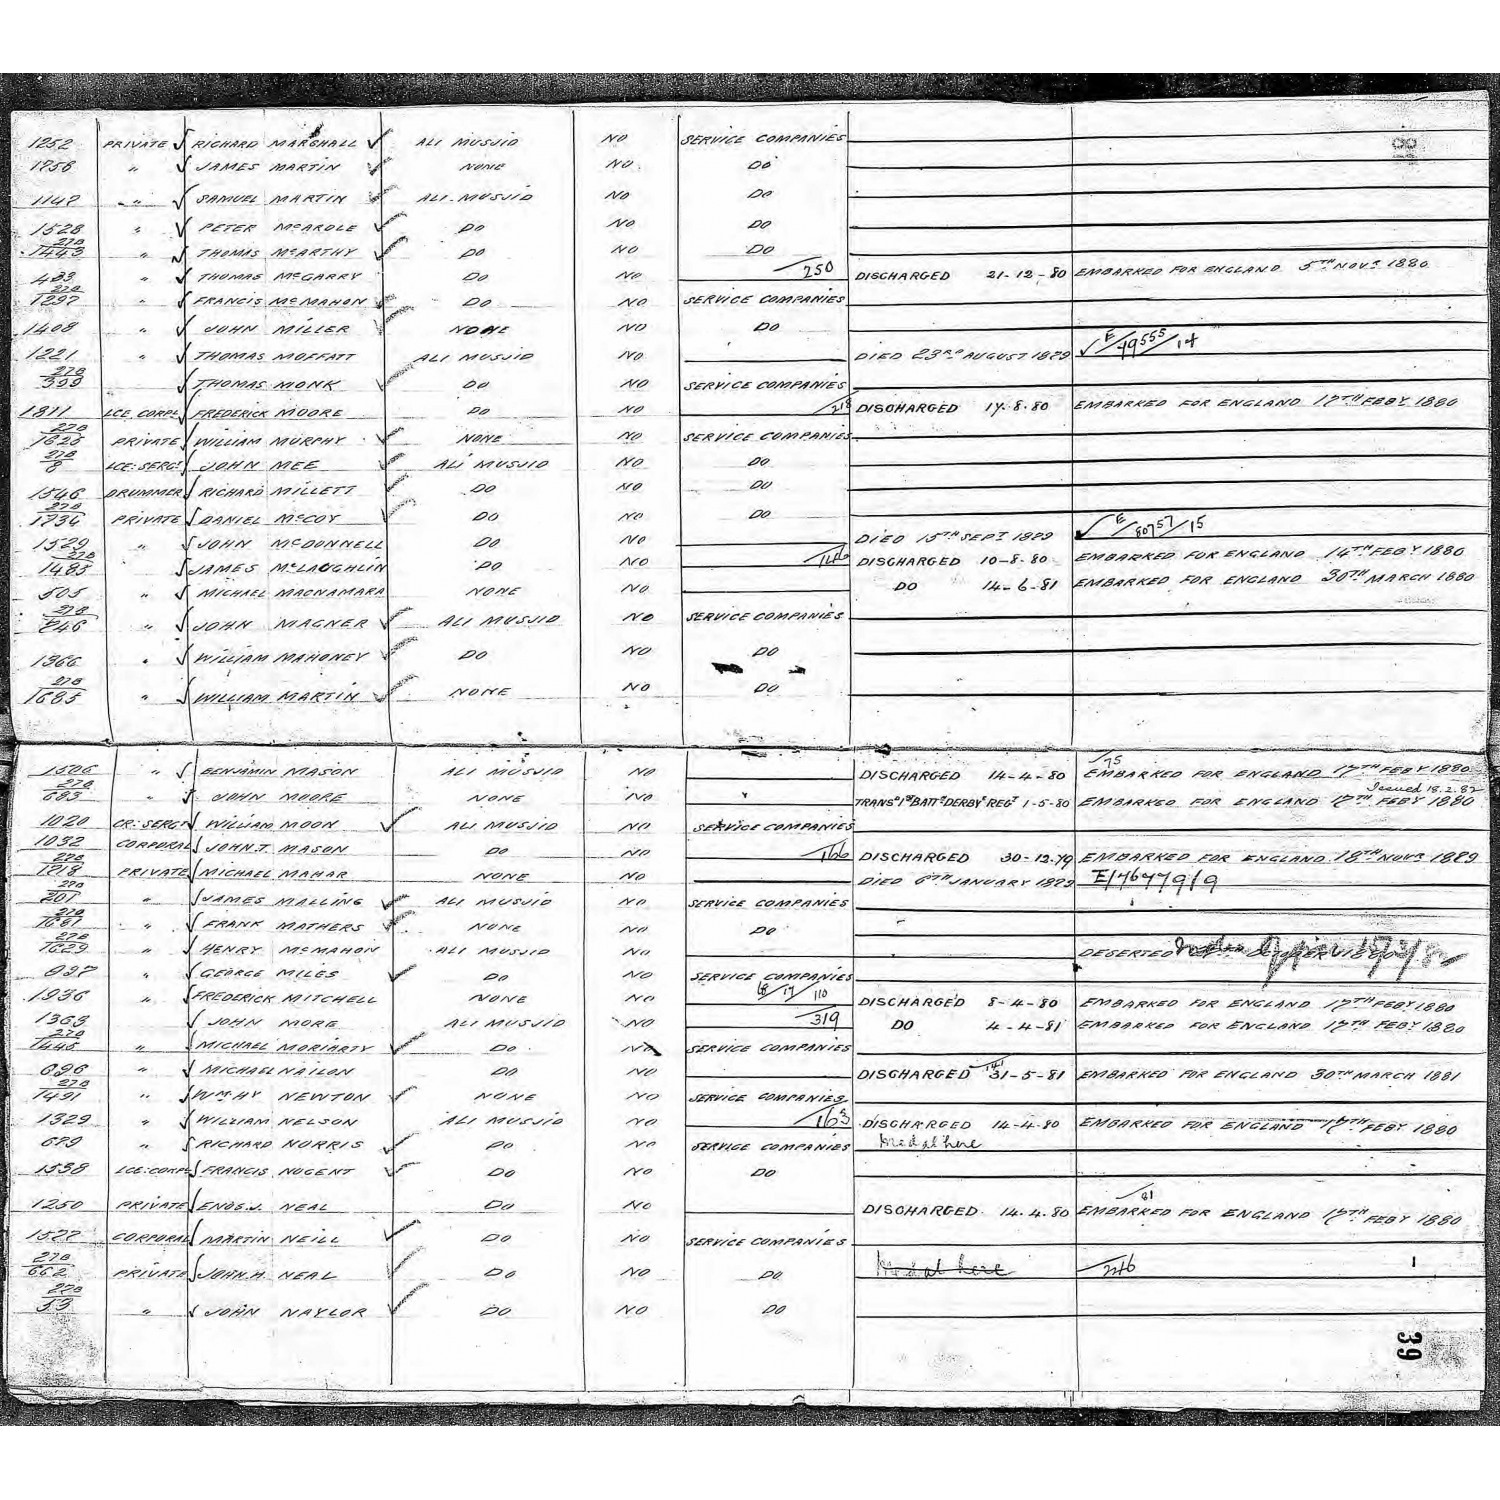 1252 PRIVATE RICHARD MARSHALL ALI MUSJID NO SERVICE COMPANIES
1756 " JAMES MARTIN NONE NO. DO
1147 " SAMUEL MARTIN ALI MUSJID NO DO
1528 " PETER McARDLE DO NO DO
270/1443 " THOMAS McARTHY DO NO DO
433 " THOMAS McGARRY DO NO 250 DISCHARGED 21-12-80 EMBARKED FOR ENGLAND 5TH NOVR 1880
270/1297 " FRANCIS McMAHON DO NO SERVICE COMPANIES
1408 " JOHN MILLER NONE NO DO
1221 " THOMAS MOFFATT ALI MUSJID NO DIED 23RD AUGUST 1879 E/49555/14
270/399 THOMAS MONK DO NO SERVICE COMPANIES
1811 LCE. CORPL FREDERICK MOORE DO NO 218 DISCHARGED 17.8.80 EMBARKED FOR ENGLAND 17TH FEBY 1880
270/1626 PRIVATE WILLIAM MURPHY NONE NO SERVICE COMPANIES
270/8 LCE: SERGT JOHN MEE ALI MUSJID NO DO
1546 DRUMMER RICHARD MILLETT DO NO DO
270/1734 PRIVATE DANIEL McCOY DO NO DO
1529 " JOHN McDONNELL DO NO DIED 15TH SEPT 1879 E/80757/15
270/1485 JAMES McLAUGHLIN DO NO 146 DISCHARGED 10-8-80 EMBARKED FOR ENGLAND 14TH FEBY 1880
505 " MICHAEL MACNAMARA NONE NO DO 14-6-81 EMBARKED FOR ENGLAND 30TH MARCH 1880
270/ " JOHN MAGNER ALI MUSJID NO SERVICE COMPANIES
1366 " WILLIAM MAHONEY DO NO DO
270/1685 " WILLIAM MARTIN NONE NO DO
1506 " BENJAMIN MASON ALI MUSJID NO DISCHARGED 14-4-80 75 EMBARKED FOR ENGLAND 17TH FEBY 1880
Issued 18.2.82
270/683 " JOHN MOORE NONE NO TRANSD 1ST BATTN DERBYE REGT 1-5-80 EMBARKED FOR ENGLAND 17TH FEBY 1880
1020 CR: SERGT WILLIAM MOON ALI MUSJID NO SERVICE COMPANIES
1032 CORPORAL JOHN T. MASON DO NO 166 DISCHARGED 30-12-79 EMBARKED FOR ENGLAND 18TH NOVR 1879
270/1218 PRIVATE MICHAEL MAHAR NONE NO DIED 6TH JANUARY 1879 E/76479/9
270/201 " JAMES MALLING ALI MUSJID NO SERVICE COMPANIES
270/1681 " FRANK MATHERS NONE NO DO
270/1629 " HENRY McMAHON ALI MUSJID NO DESERTED OCTOBER 1880
937 " GEORGE MILES DO NO SERVICE COMPANIES
1936 " FREDERICK MITCHELL NONE NO 18/17/110 DISCHARGED 8-4-80 EMBARKED FOR ENGLAND 17TH FEBY 1880
1363 JOHN MORE ALI MUSJID NO 319 DO 4-4-81 EMBARKED FOR ENGLAND 17TH FEBY 1880
270/1446 " MICHAEL MORIARTY DO NO SERVICE COMPANIES
696 " MICHAEL NAILON DO NO DISCHARGED 31-5-81 EMBARKED FOR ENGLAND 30TH MARCH 1881
270/1491 " WM HY NEWTON NONE NO SERVICE COMPANIES
1329 " WILLIAM NELSON ALI MUSJID NO 163 DISCHARGED 14-4-80 EMBARKED FOR ENGLAND 17TH FEBY 1880
679 " RICHARD NORRIS DO NO SERVICE COMPANIES Medal here
1338 LCE: CORPL FRANCIS NUGENT DO NO DO
1250 PRIVATE ENOS. J. NEAL DO NO DISCHARGED 14.4.80 81 EMBARKED FOR ENGLAND 17TH FEBY 1880
1577 CORPORAL MARTIN NEILL DO NO SERVICE COMPANIES
270/662 PRIVATE JOHN. H. NEAL DO NO DO Medal here 246
270/53 " JOHN NAYLOR DO NO DO
39